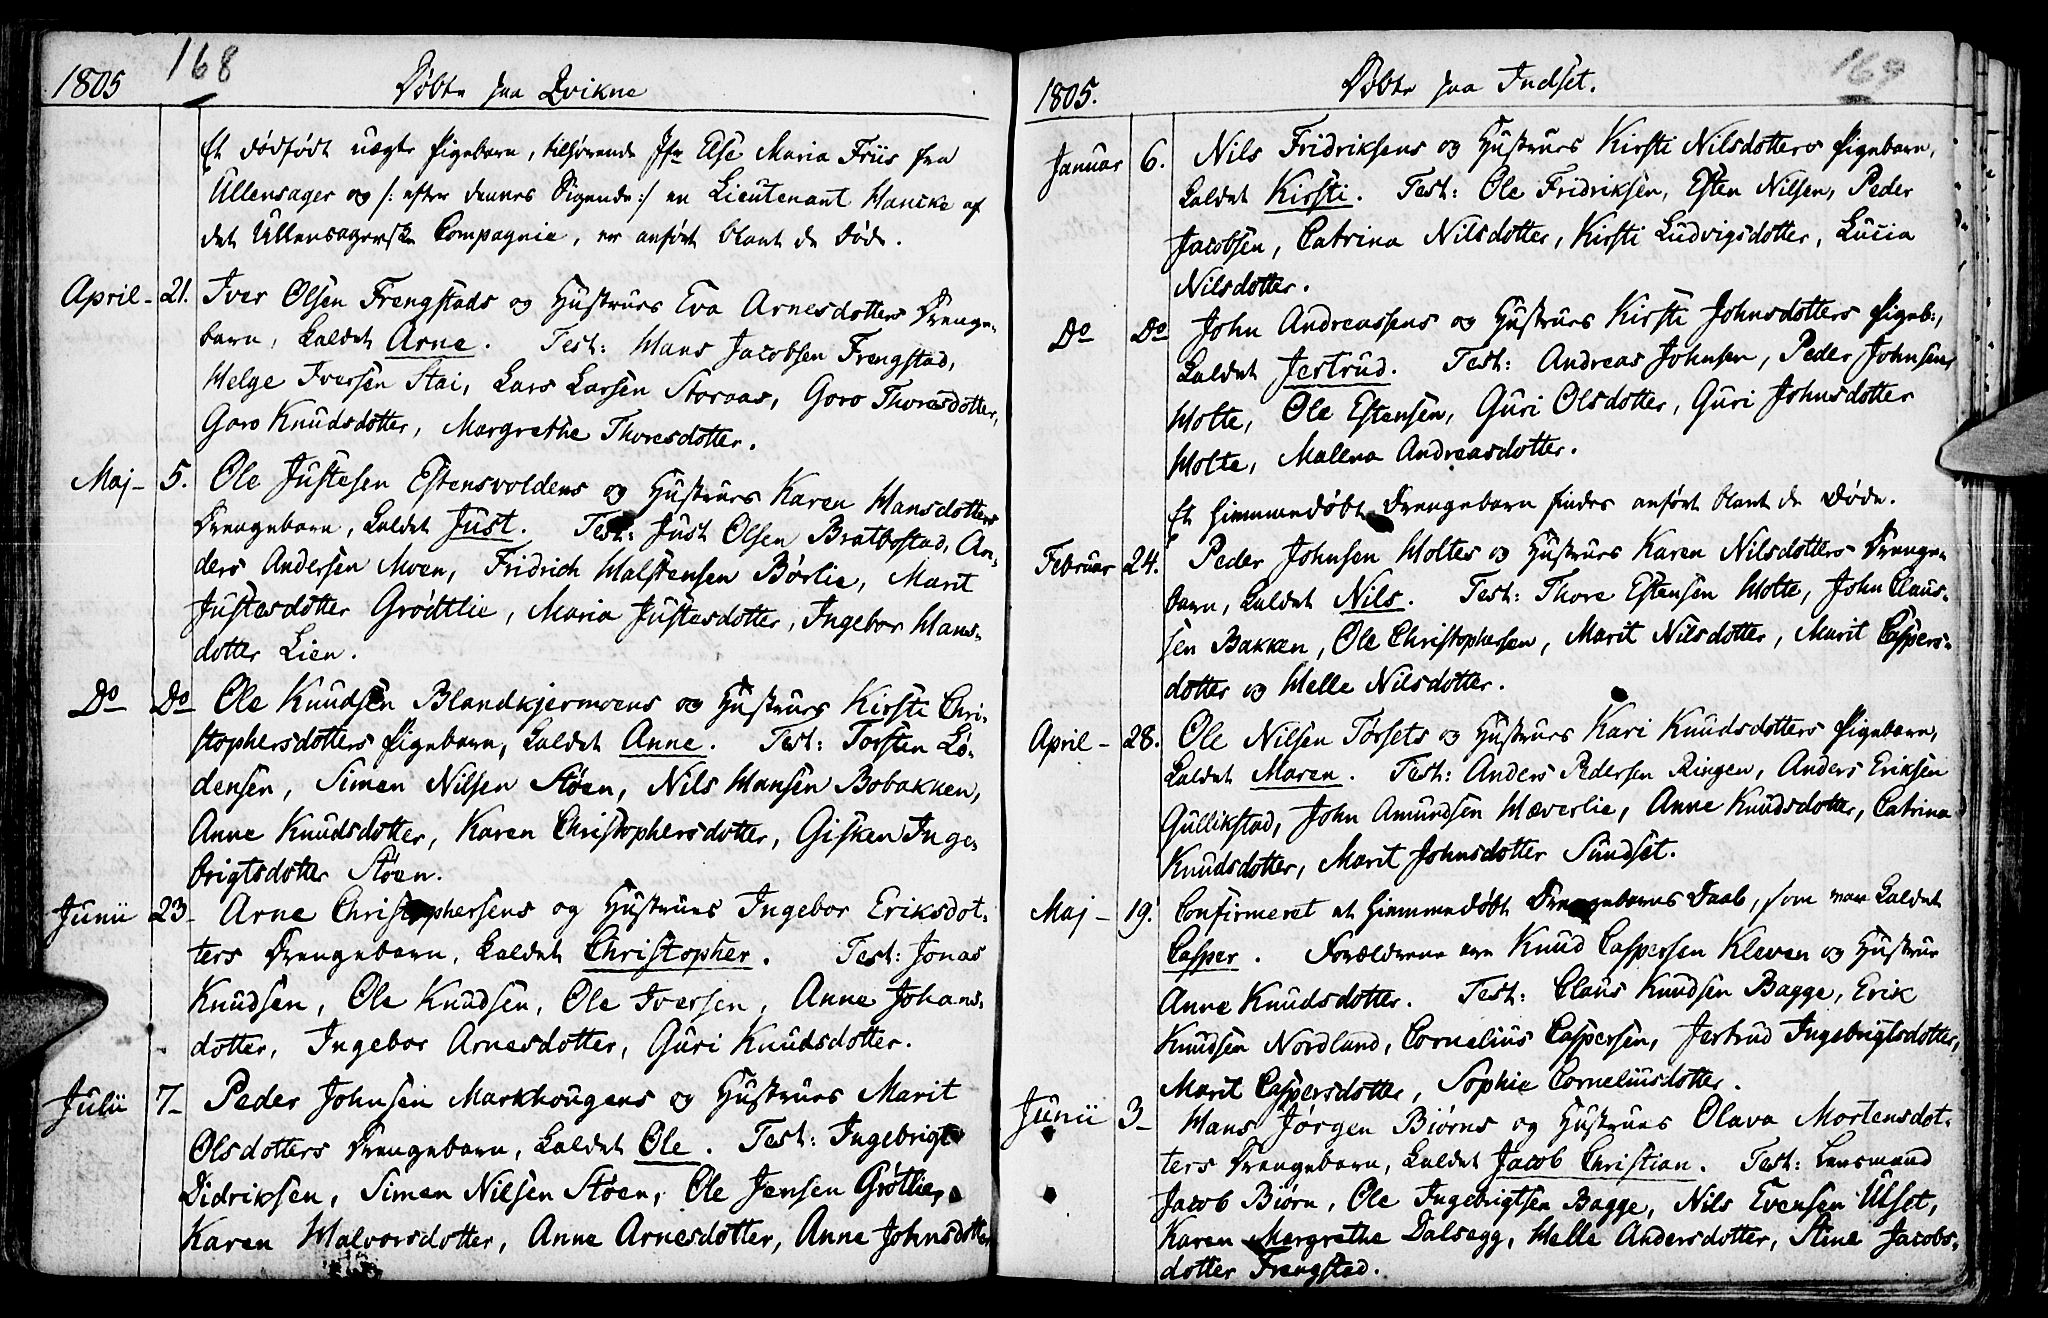 1805 168
Døbte paa Qvikne
Et dødfødt uægte Pigebarn, tilhørende Jfr Else Maria Friis fra
Ullensager og /: efter dennes Sigende :/ en Lieutenant Hancke af
det Ullensagerske Compagnie, er anført blant de Døde.
April - 21. Iver Olsen Frengstads og Hustrues Eva Arnesdotters Drenge-
barn, kaldet Arne. Test: Hans Jacobsen Frengstad,
Helge Iversen Stai, Lars Larsen Storaas, Goro Thoresdotter,
Goro Knudsdotter, Margrethe Thoresdotter.
Maj - 5. Ole Justesen Estensvoldens og Hustrues Karen Hansdotters
Drengebarn, kaldet Just. Test: Just Olsen Bratbostad, An-
ders Andersen Moen, Fridrich Halstensen Børlie, Marit
Justesdotter Grødtlie, Maria Justesdotter, Ingebor Hans-
dotter Lien.
Do Do Ole Knudsen Blandkjermoens og Hustrues Kirsti Chri-
stophersdotters Pigebarn, kaldet Anne. Test: Torsten Lo-
densen, Simen Nilsen Støen, Nils Hansen Bobakken,
Anne Knudsdotter, Karen Christophersdotter, Gisken Inge-
brigtsdotter Støen.
Junii 23 - Arne Christophersens og Hustrues Ingebor Eriksdot-
ters Drengebarn, kaldet Christopher. Test: Jonas
Knudsen, Ole Knudsen, Ole Iversen, Anne Johans-
dotter, Ingebor Arnesdotter, Guri Knudsdotter.
Julii 7 - Peder Johnsen Markhougens og Hustrues Marit
Olsdotters Drengebarn, kaldet Ole. Test: Ingebrigt
Didriksen, Simen Nilsen Støen, Ole Jensen Grøtlie,
Karen Halvorsdotter, Anne Arnesdotter, Anne Johnsdotter
1805. Døbte paa Indset. 169
Januar 6. Nils Fridriksens og Hustrues Kirsti Nilsdotters Pigebarn,
kaldet Kirsti. Test: Ole Fridriksen, Esten Nilsen, Peder
Jacobsen, Catrina Nilsdotter, Kirsti Ludvigsdotter, Lucia
Nilsdotter.
Do Do John Andreassens og Hustrues Kirsti Johnsdotters Pigeb:,
kaldet Jertrud. Test: Andreas Johnsen, Peder Johnsen
Holte, Ole Estensen, Guri Olsdotter, Guri Johnsdotter
Holte, Malena Andreasdotter.
Et hiemmedøbt Drengebarn findes anført blant de Døde.
Februar 24. Peder Johnsen Holtes og Hustrues Karen Nilsdotters Drenge-
barn, kaldet Nils. Test: Thore Estensen Holte, John Claus-
sen Bakken, Ole Christophersen, Marit Nilsdotter, Marit Caspers-
dotter og Helle Nilsdotter.
April - 28. Ole Nilsen Torsets og Hustrues Kari Knudsdotters Pigebarn,
kaldet Maren. Test: Anders Pedersen Ringen, Anders Eriksen
Gullikstad, John Amundsen Hæverlie, Anne Knudsdotter, Catrina
Knudsdotter, Marit Johnsdotter Sundset.
Maj - 19. Confirmeret et hiemmedøbt Drengebarns Daab, som var kaldet
Casper. Forældrene ere Knud Caspersen Kleven og Hustrue
Anne Knudsdotter. Test: Claus Knudsen Bagge, Erik
Knudsen Nordland, Cornelius Caspersen, Jertrud Ingebrigtsdotter,
Marit Caspersdotter, Sophie Corneliusdotter.
Junii 3 - Hans Jørgen Biørns og Hustrues Olava Mortensdot-
ters Drengebarn, kaldet Jacob Christian. Test: Lensmand
Jacob Biørn, Ole Ingebrigtsen Bagge, Nils Evensen Ulset,
Karen Margrethe Dalsegg, Helle Andersdotter, Stine Jacobs-
dotter Frengstad.